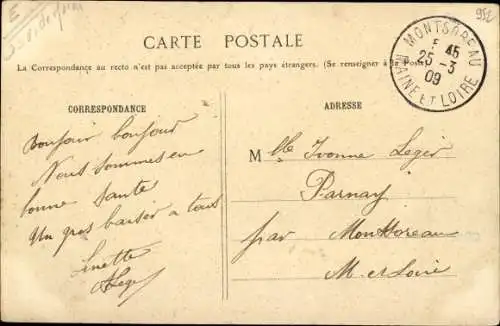 952
CARTE POSTALE
La Correspondance au recto n'est pas acceptée par tous les pays étrangers. (Se renseigner à la Poste)
MONTSOREAU
E 45
25 - 3
09
MAINE ET LOIRE
CORRESPONDANCE
Bonjour bonjour
Nous sommes en
bonne santé
Un gros baiser a tous
Linette
Leger
ADRESSE
Mlle Ivonne Leger
Parnay
par Montsoreau
M. et Loire